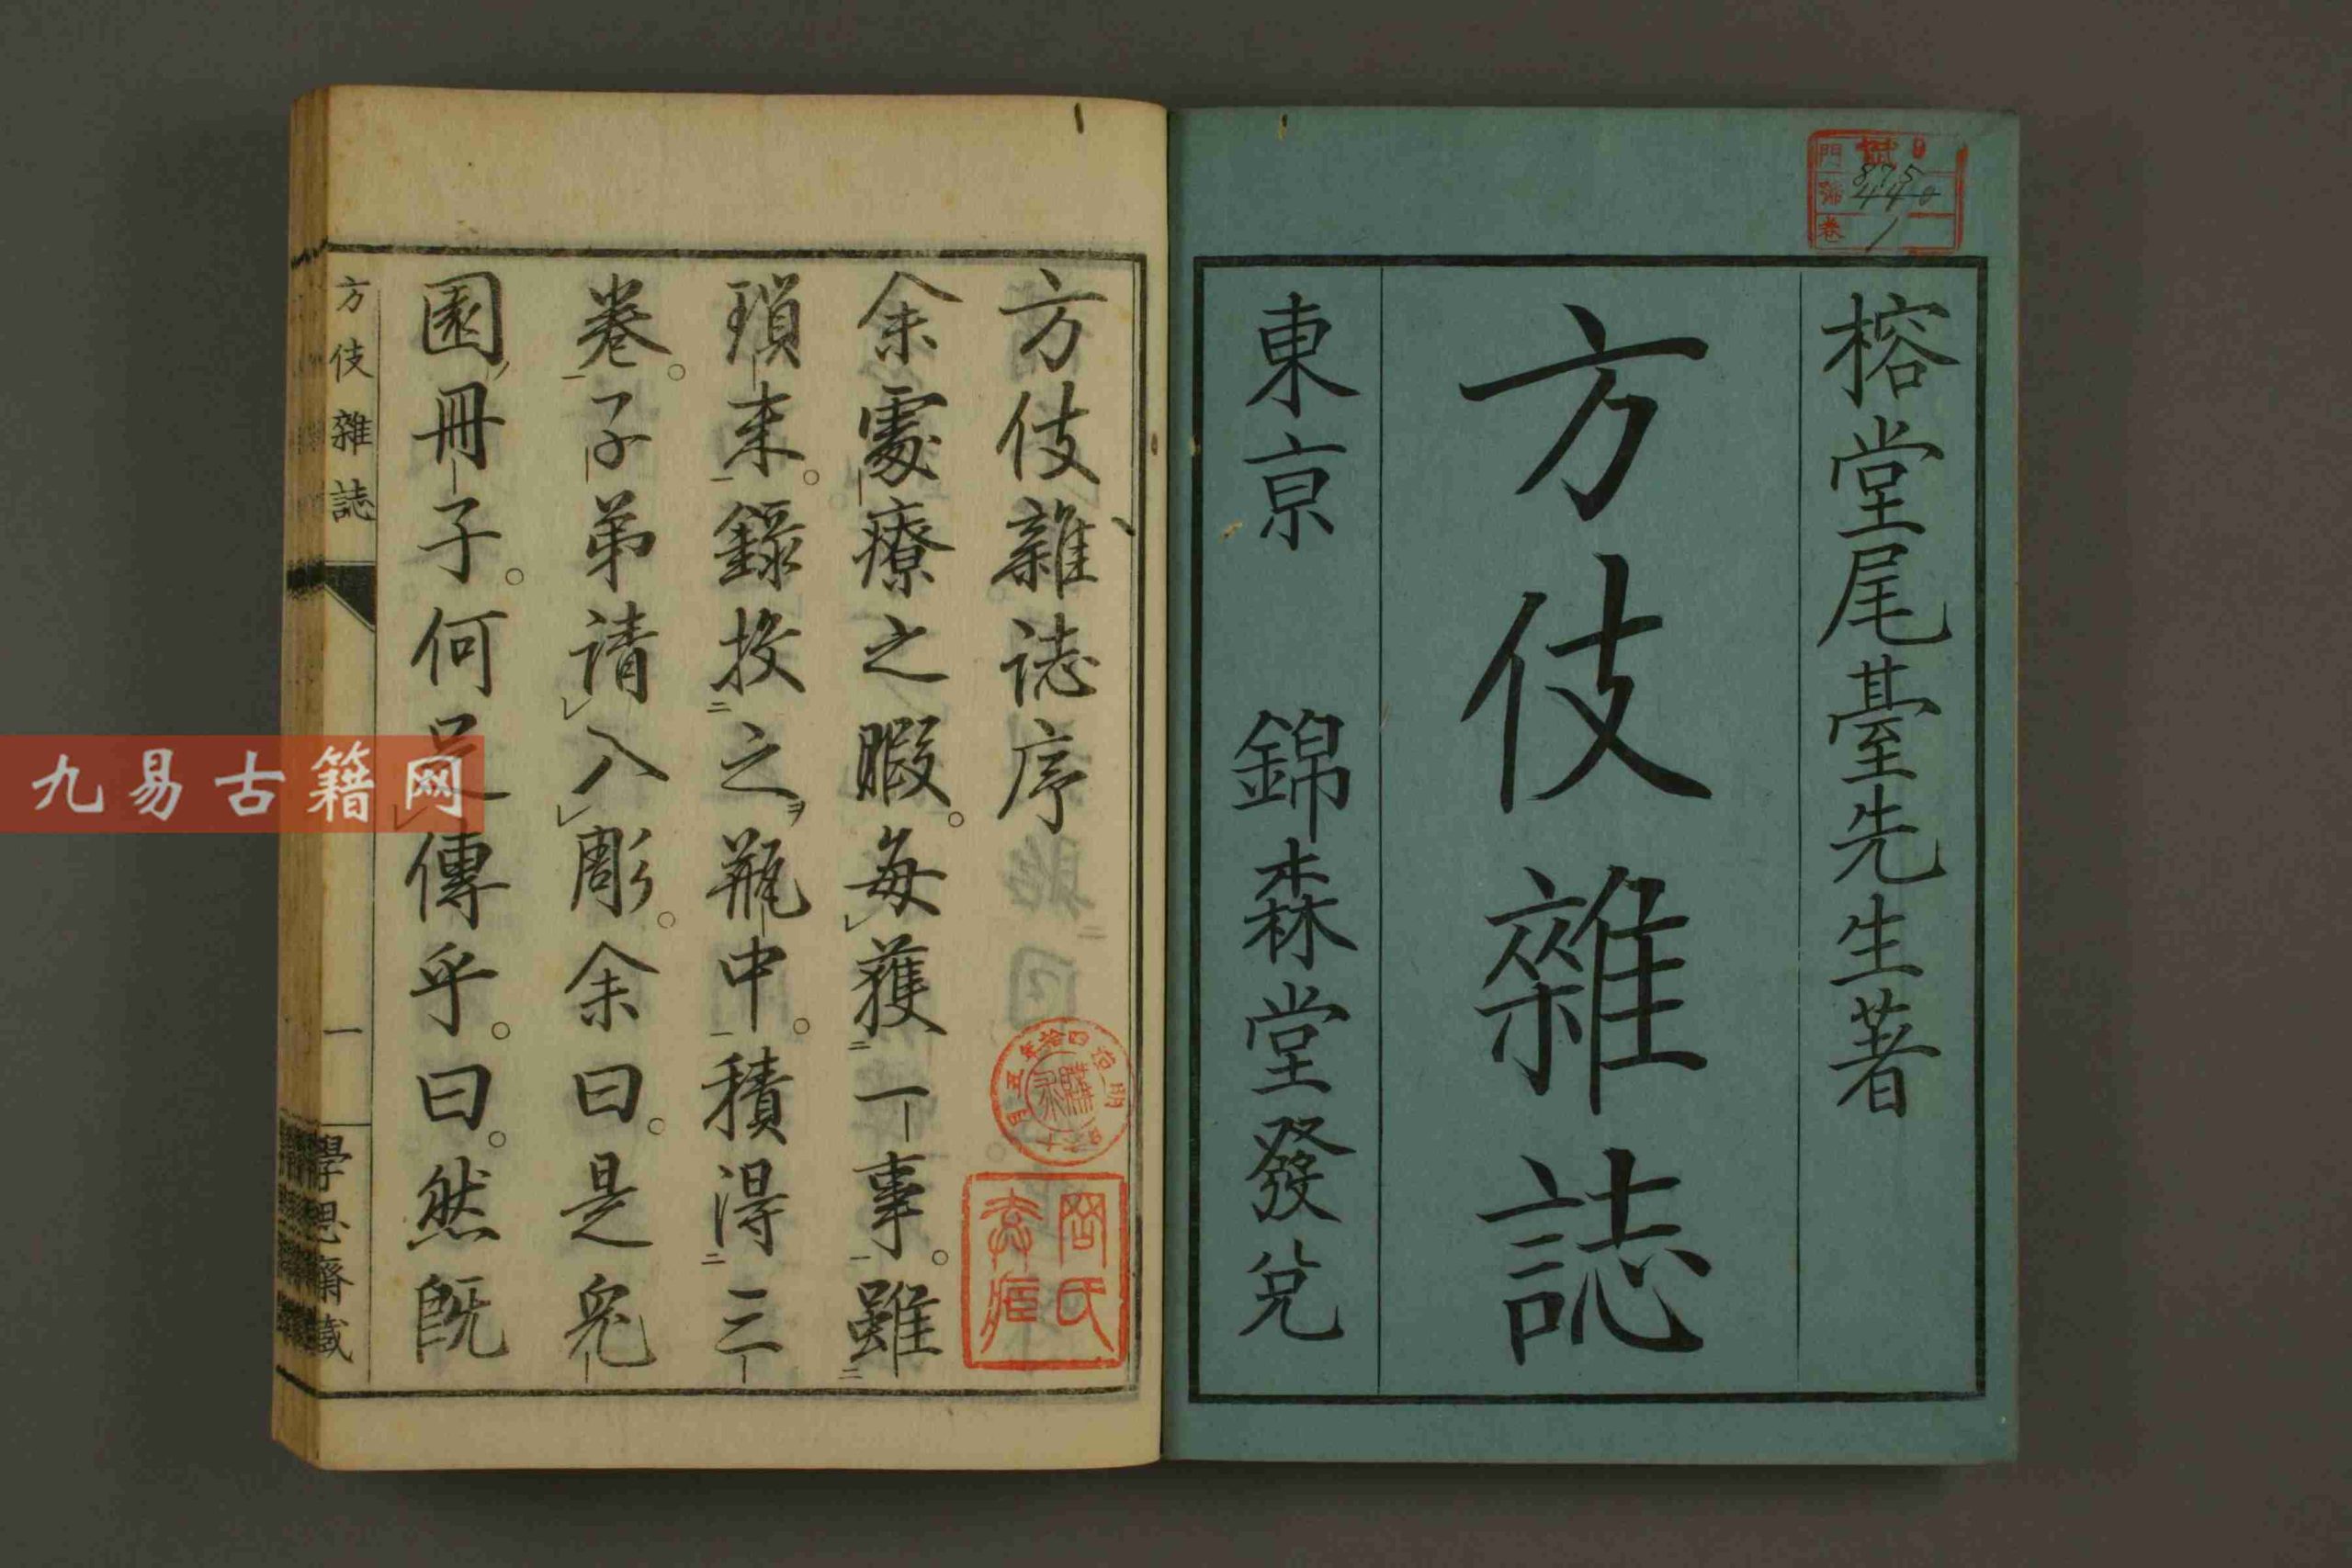 榕堂尾臺先生著
方伎雜誌
東京 錦森堂發兌
門
號
卷
875
440
1
方伎雜誌序
余處療之暇。每獲一事。雖
瑣末。錄投之瓶中。積得三
卷。子弟請入彫。余曰。是兎
園冊子。何足傳乎。曰。然既
方伎雜誌
一
學思齋藏
岡氏
九易古籍网